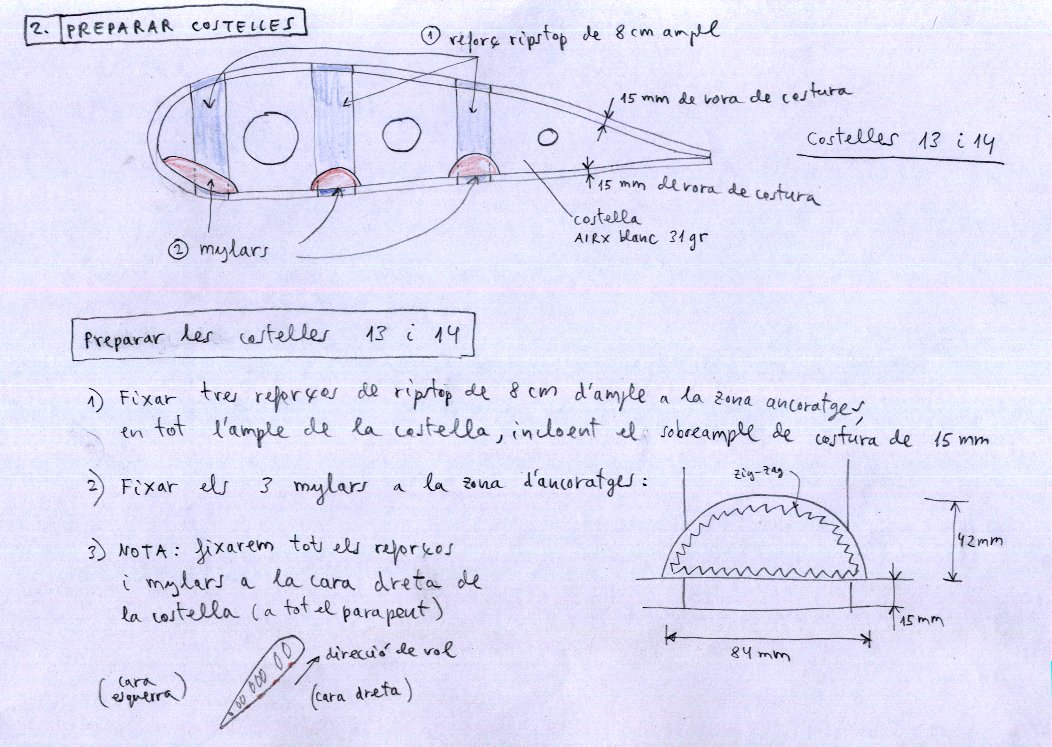 2. PREPARAR COSTELLES
① reforç ripstop de 8 cm ample
15 mm de vora de costura
Costelles 13 i 14
15 mm de vora de costura
costella
AIRX blanc 31gr
② mylars
Preparar les costelles 13 i 14
1) Fixar tres reforços de ripstop de 8 cm d'ample a la zona ancoratges,
en tot l'ample de la costella, incloent el sobreample de costura de 15 mm
2) Fixar els 3 mylars a la zona d'ancoratges:
zig-zag
42mm
3) NOTA: fixarem tots els reforços
i mylars a la cara dreta de
la costella (a tot el parapent)
15mm
84 mm
direcció de vol
(cara esquerra)
(cara dreta)